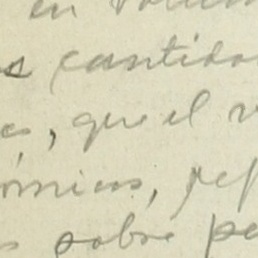 en volum
s cantida
es, que el v
ómicos, ref
s sobre pe